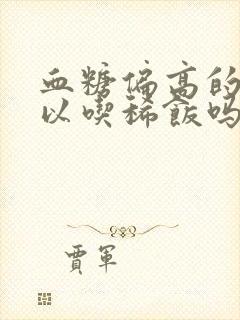 血糖偏高的
以喫稀飯吗
賈軍